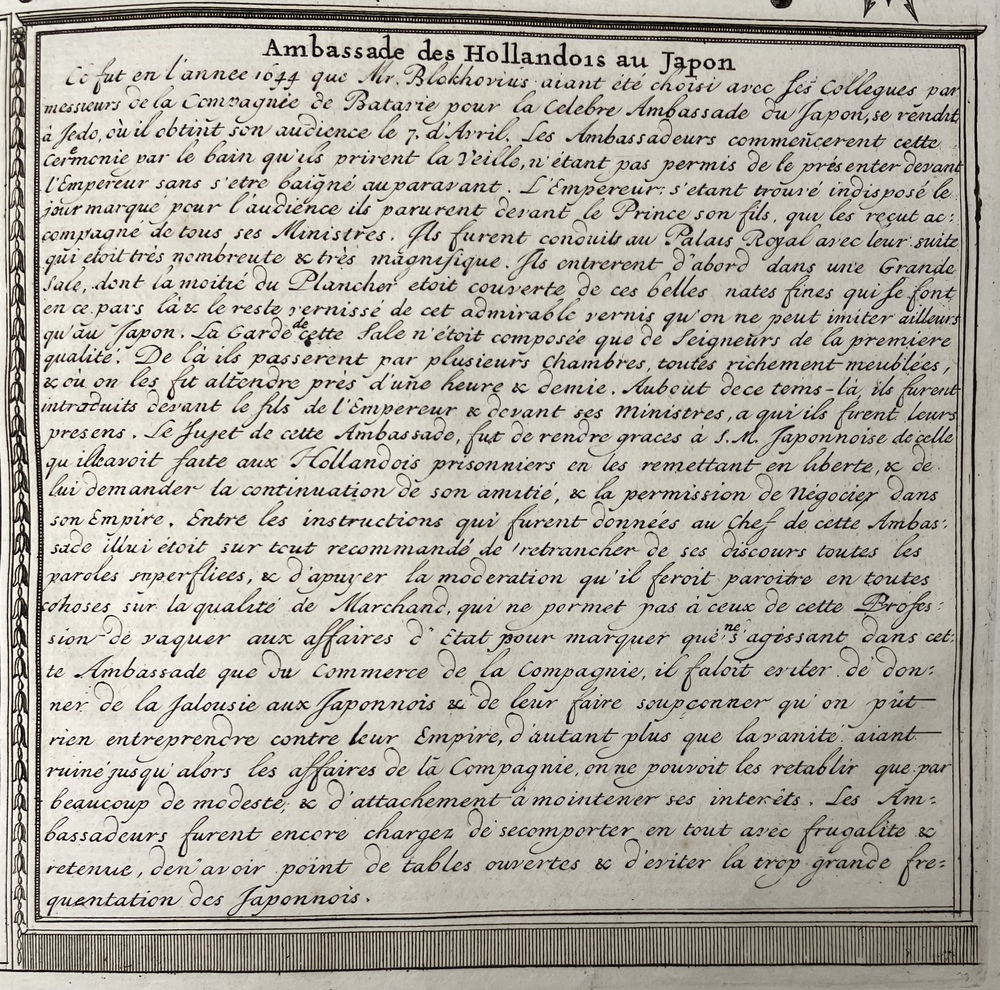 Ambassade des Hollandois au Japon
Ce fut en l'année 1644 que Mr. Blokhovius aiant été choisi avec ses Collegues par
messieurs de la Compagnie de Batavie pour la Celebre Ambassade du Japon, se rendit
à Jedo, où il obtint son audience le 7. d'Avril. Les Ambassadeurs commencerent cette
Ceremonie par le bain qu'ils prirent la Veille, n'étant pas permis de se présenter devant
l'Empereur sans s'etre baigné auparavant. L'Empereur s'etant trouvé indisposé le
jour marqué pour l'audience ils parurent devant le Prince son fils, qui les reçut ac:
compagné de tous ses Ministres. Ils furent conduits au Palais Royal avec leur suite
qui étoit très nombreute & très magnifique. Ils entrerent d'abord dans une Grande
Sale, dont la moitié du Plancher etoit couverte de ces belles nates fines qui se font
en ce pars là & le reste vernissé de cet admirable vernis qu'on ne peut imiter ailleurs
qu'au Japon. La Garde de cette Sale n'étoit composée que de Seigneurs de la premiere
qualité. De là ils passerent par plusieurs Chambres, toutes richement meublées,
& où on les fit attendre près d'une heure & demie. Aubout dece tems-là, ils furent
introduits devant le fils de l'Empereur & devant ses Ministres, a qui ils firent leurs
presens. Le Sujet de cette Ambassade, fut de rendre graces à S.M. Japonnoise de celle
qu'il avoit faite aux Hollandois prisonniers en les remettant en liberte, & de
lui demander la continuation de son amitié, & la permission de Négocier dans
son Empire. Entre les instructions qui furent données au Chef de cette Ambas:
sade il lui étoit sur tout recommandé de retrancher de ses discours toutes les
paroles superfliees, & d'apuyer la moderation qu'il feroit paroitre en toutes
choses sur la qualité de Marchand, qui ne pormet pas à ceux de cette Profes:
sion de vaquer aux affaires d'Etat pour marquer que ne s'agissant dans cet:
te Ambassade que du Commerce de la Compagnie, il faloit eviter de don:
ner de la Jalousie aux Japonnois & de leur faire soupçonner qu'on pût
rien entreprendre contre leur Empire, d'autant plus que la vanite aiant
ruiné jusqu'alors les affaires de la Compagnie, on ne pouvoit les retablir que par
beaucoup de modeste, & d'attachement à mointener ses interêts. Les Am:
bassadeurs furent encore chargez de secomporter en tout avec frugalité &
retenue, den'avoir point de tables ouvertes & d'eviter la trop grande fre:
quentation des Japonnois.